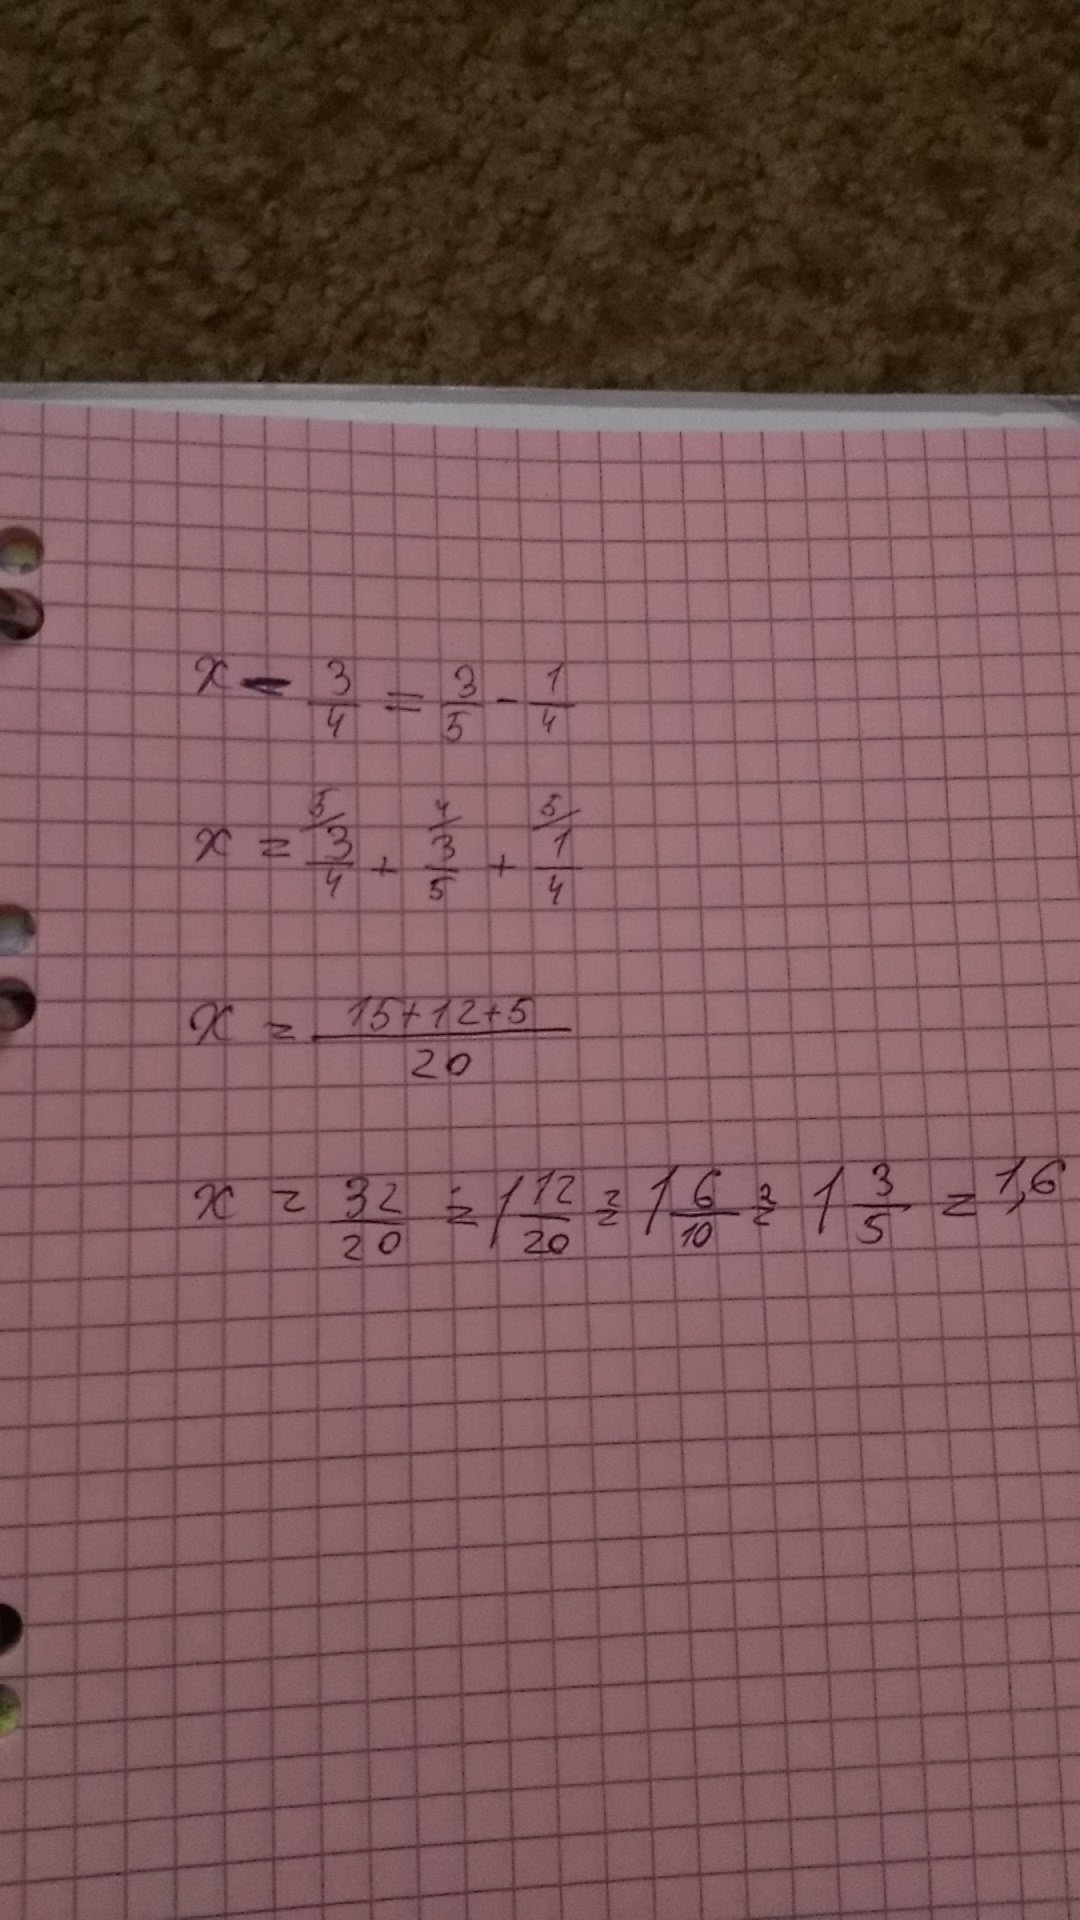 x - 3/4 = 3/5 - 1/4
x = 5/ 3/4 + 4/ 3/5 + 5/ 1/4
x = 15+12+5/20
x = 32/20 = 1 12/20 = 1 6/10 = 1 3/5 = 1,6